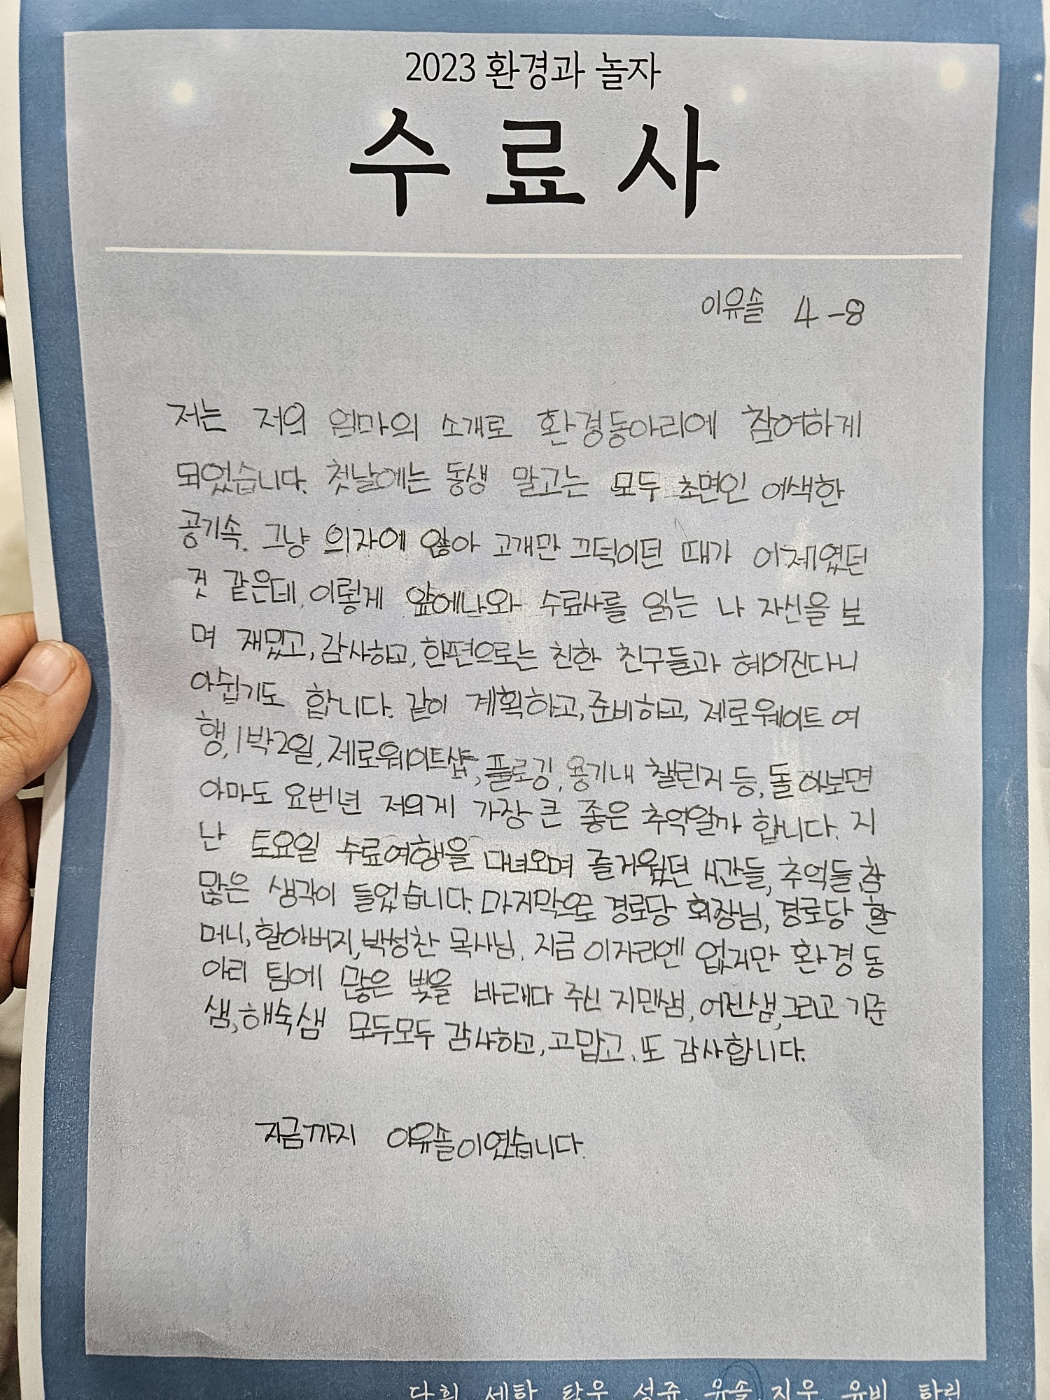 2023 환경과 놀자
수료사
이유솔 4-8
저는 저의 엄마의 소개로 환경동아리에 참여하게
되었습니다. 첫날에는 동생 말고는 모두 초면인 어색한
공기속. 그냥 의자에 앉아 고개만 끄덕이던 때가 어제였던
것 같은데, 이렇게 앞에나와 수료사를 읽는 나 자신을 보
며 재밌고, 감사하고, 한편으로는 친한 친구들과 헤어진다니
아쉽기도 합니다. 같이 계획하고, 준비하고, 제로웨이트 여
행, 1박2일, 제로웨이트샵, 플로깅, 용기내 챌린지 등, 돌아보면
아마도 요번년 저의게 가장 큰 좋은 추억일까 합니다. 지
난 토요일 수료여행을 다녀오며 즐거웠던 시간들, 추억들 참
많은 생각이 들었습니다. 마지막으로 경로당 회장님, 경로당 할
머니, 할아버지, 박성찬 목사님, 지금 이자리엔 없지만 환경동
아리 팀에 많은 빛을 바래다 주신 지맨샘, 어진샘, 그리고 기준
샘, 해숙샘 모두모두 감사하고, 고맙고, 또 감사합니다.
지금까지 이유솔이였습니다.
다희 세학 탁우 성준 유솔 지우 유비